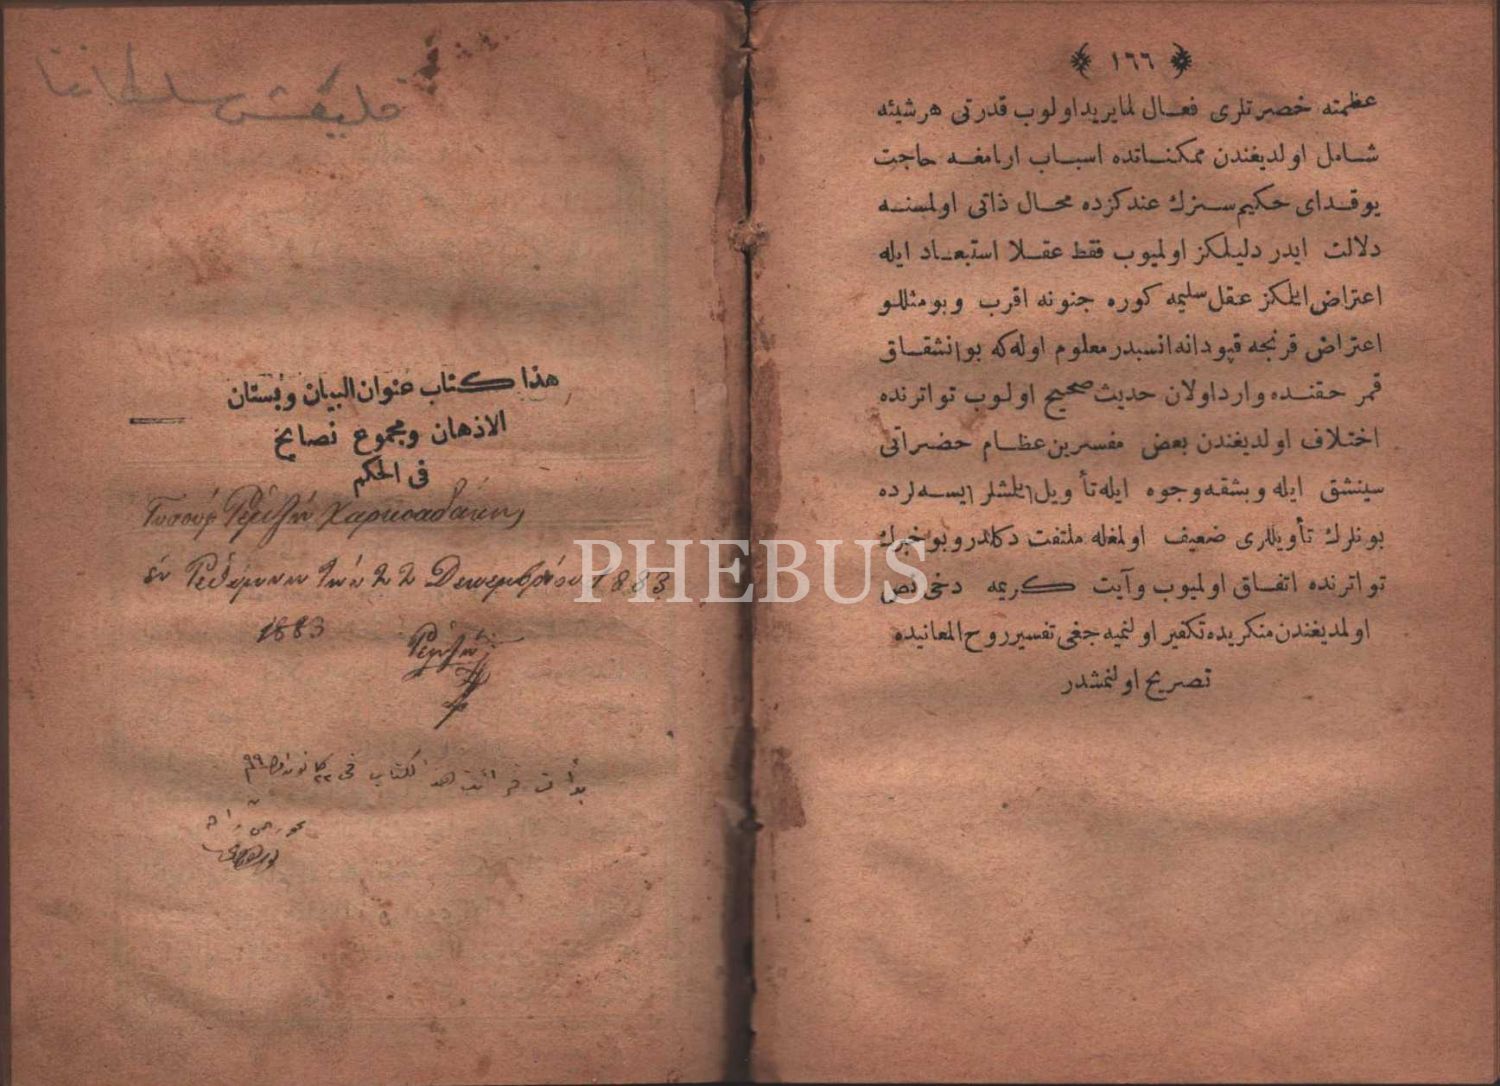 ١٦٦
عظمته حضرتلری فعال لمایرید اولوب قدرتی هر شیئه
شامل اولدیغندن ممکناتده اسباب ارامغه حاجت
یوقدای حکیم سزك عندکزده محال ذاتی اولمسنه
دلالت ایدر دلیلکز اولمیوب فقط عقلا استبعاد ایله
اعتراض ایلمکز عقل سلیمه کوره جنونه اقرب وبومثللو
اعتراض قرنجه قپودانه انسبدر معلوم اوله که بو انشقاق
قمر حقنده وارد اولان حدیث صحیح اولوب تواترنده
اختلاف اولدیغندن بعض مفسرین عظام حضراتی
سینشق ایله وبشقه وجوه ایله تأویل ایلمشلر ایسه لرده
بونلرك تأویللری ضعیف اولمغله ملتفت دکلدر وبو خبرك
تواترنده اتفاق اولمیوب وآیت کریمه دخی نص
اولمدیغندن منکریده تکفیر اولنمیه جغی تفسیر روح المعانیده
تصریح اولنمشدر
سلطاننا
هذا کتاب عنوان البیان وبستان
الاذهان ومجموع نصایح
فی الحکم
ἐν Ῥεθύμνῃ τῇ 22 Δεκεμβρίου 1883
1883
هذا الکتاب فی
PHEBUS